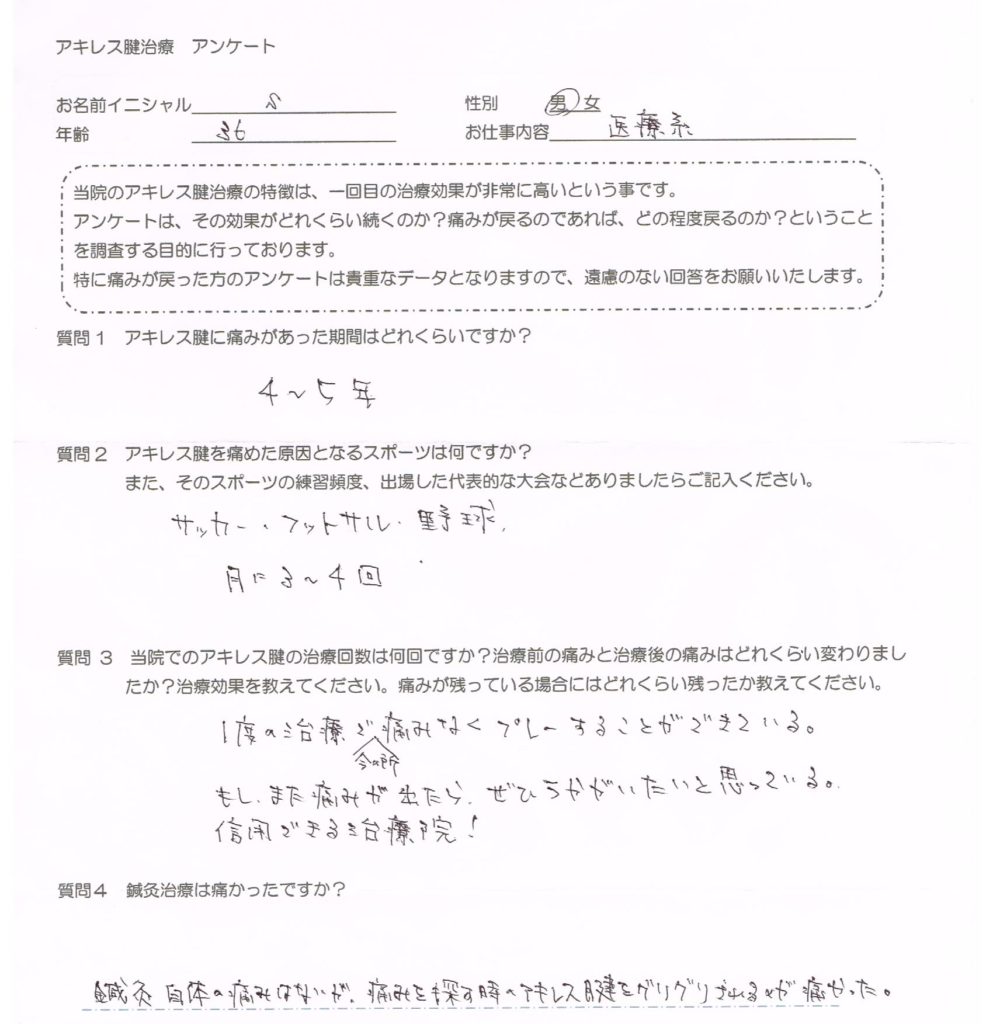 アキレス腱治療　アンケート
お名前イニシャル S 性別 男 女
年齢 36 お仕事内容 医療系
当院のアキレス腱治療の特徴は、一回目の治療効果が非常に高いという事です。
アンケートは、その効果がどれくらい続くのか？痛みが戻るのであれば、どの程度戻るのか？ということ
を調査する目的に行っております。
特に痛みが戻った方のアンケートは貴重なデータとなりますので、遠慮のない回答をお願いいたします。
質問１　アキレス腱に痛みがあった期間はどれくらいですか？
4～5年
質問２　アキレス腱を痛めた原因となるスポーツは何ですか？
また、そのスポーツの練習頻度、出場した代表的な大会などありましたらご記入ください。
サッカー・フットサル・野球、
月に3～4回
質問 ３　当院でのアキレス腱の治療回数は何回ですか？治療前の痛みと治療後の痛みはどれくらい変わりまし
たか？治療効果を教えてください。痛みが残っている場合にはどれくらい残ったか教えてください。
1度の治療で痛みなくプレーすることができている。
今の所
もし、また痛みが出たら、ぜひうかがいたいと思っている。
信用できる治療院！
質問４　鍼灸治療は痛かったですか？
鍼灸自体の痛みはないが、痛みを探す時のアキレス腱をグリグリされるのが痛かった。